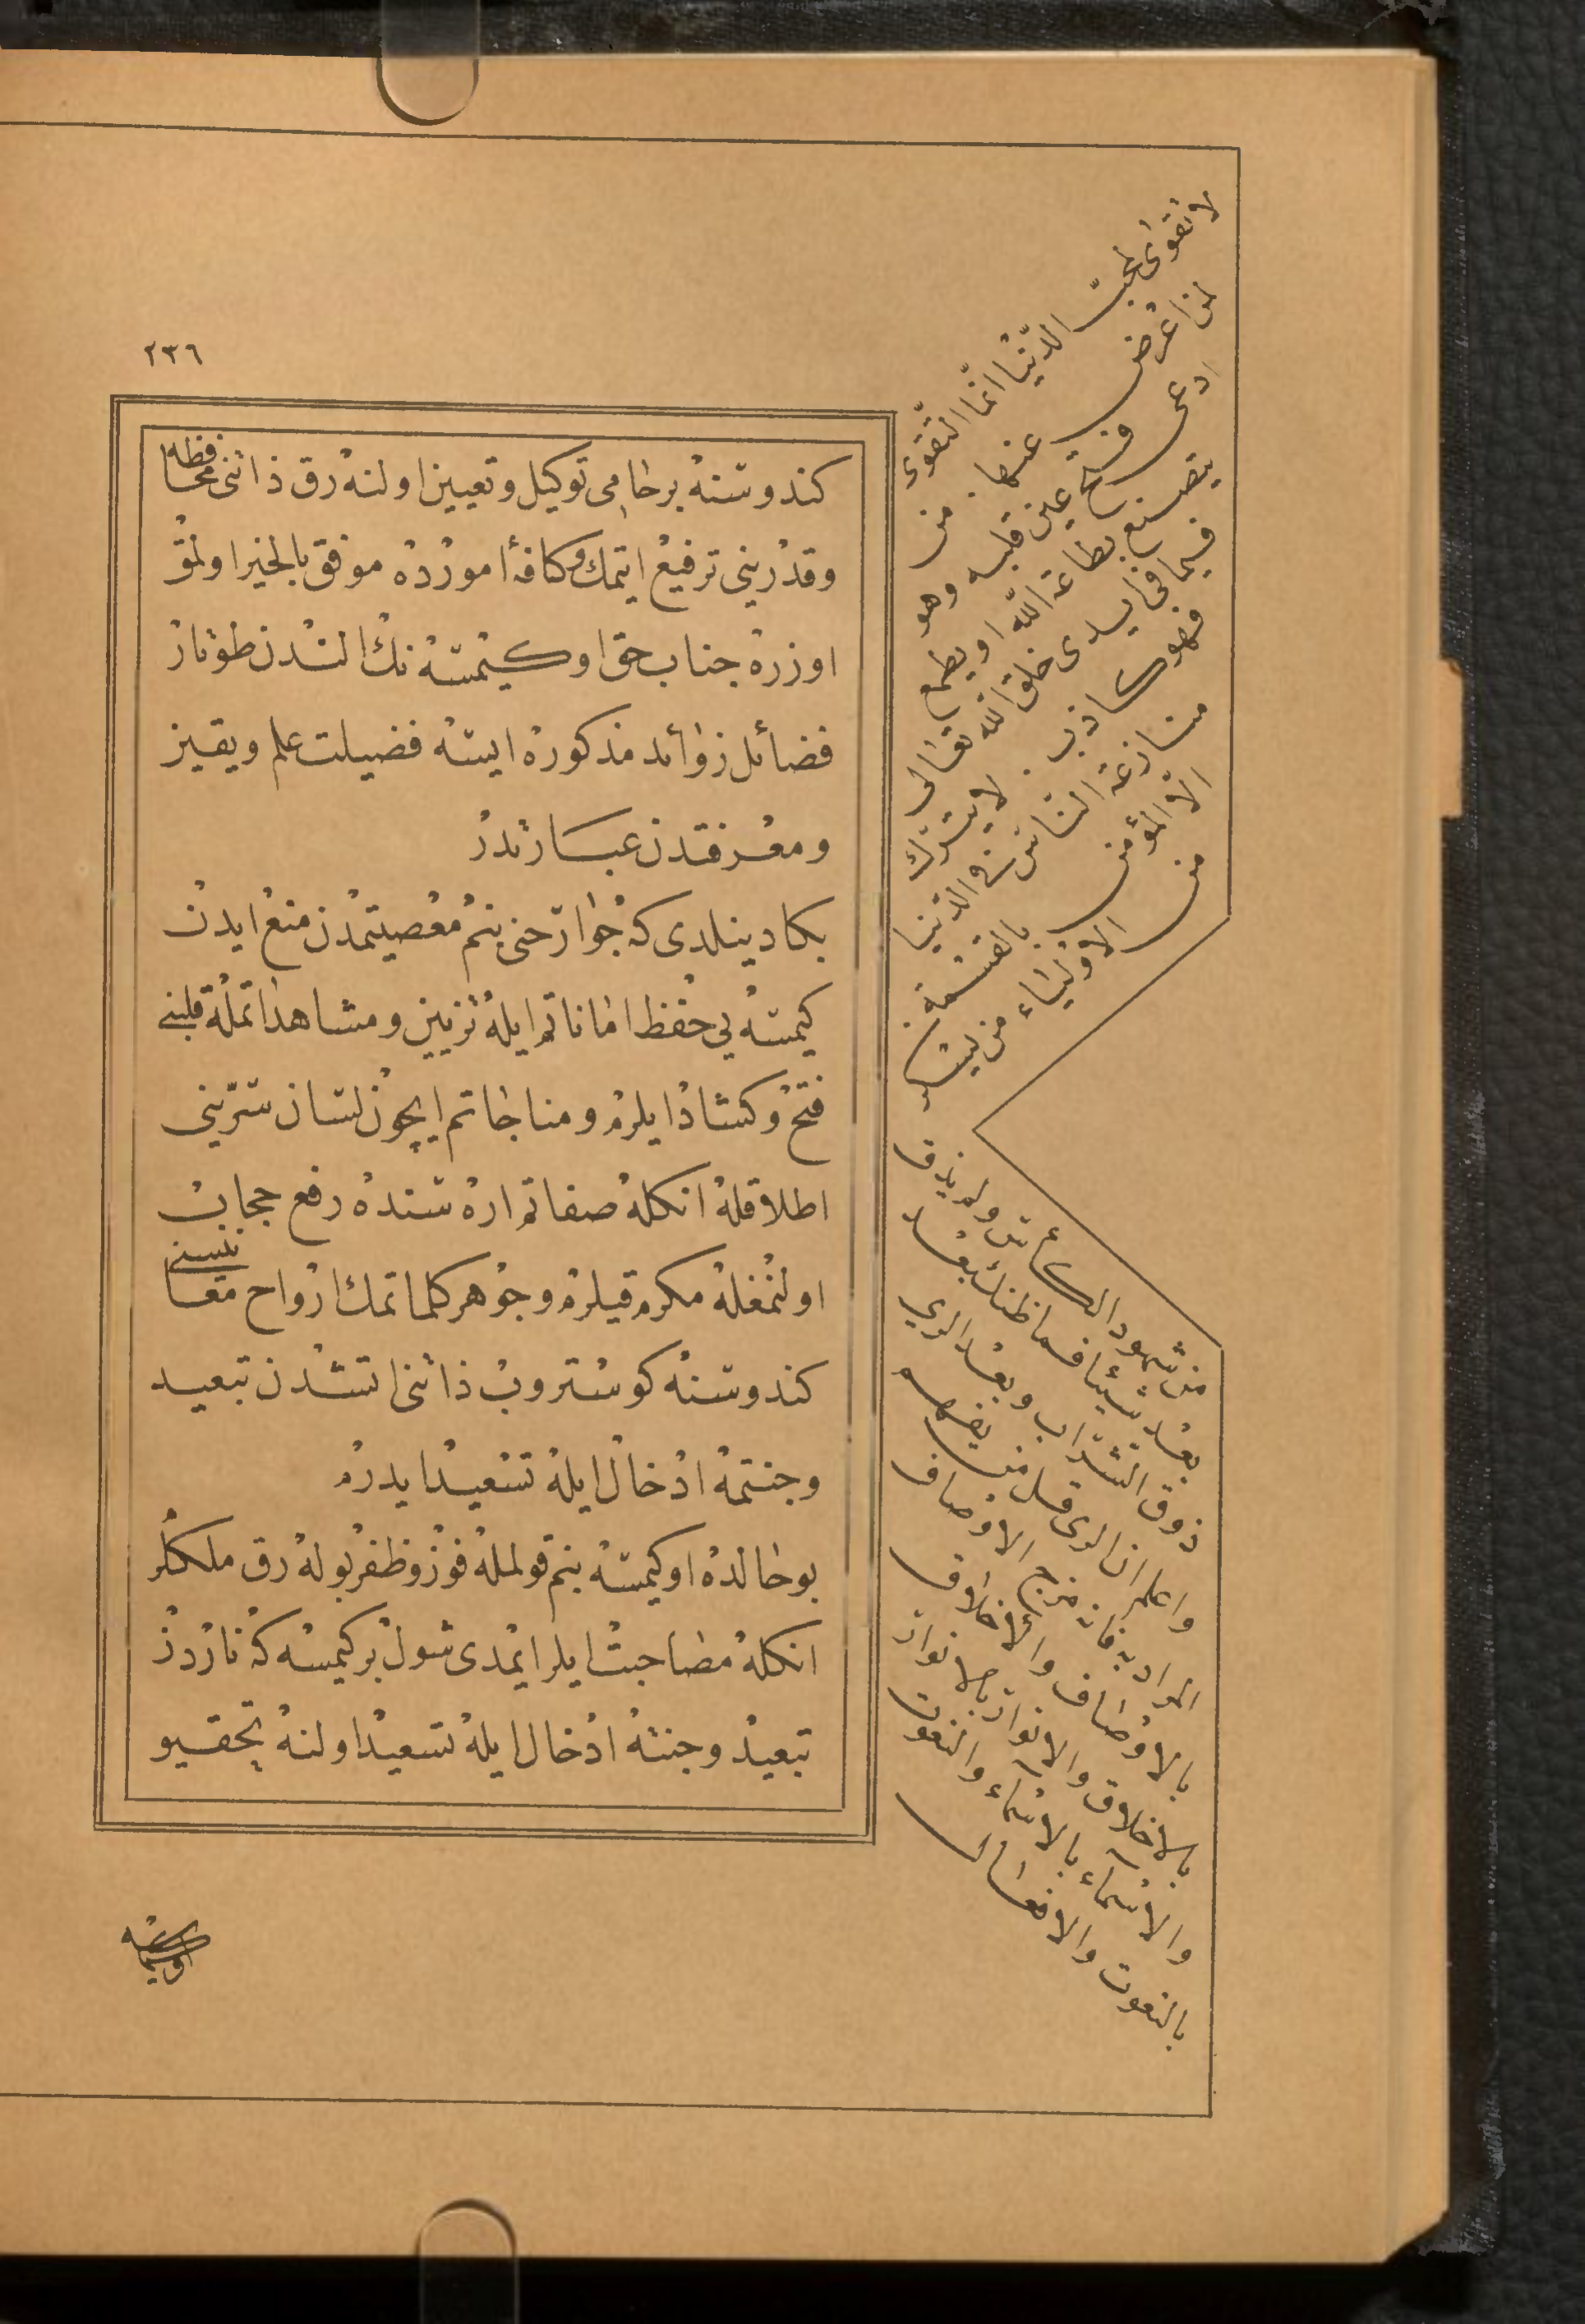 ٢٣٦
كندوسنه بر حامی توكیل و تعیین اولنه رق ذاتنی محافظه
وقدرینی ترفیع ایتمك و كافۀ امورده موفق بالخیر اولمق
اوزره جناب حق او كیمسه نك الندن طوتار
فضائل زوائد مذكوره ایسه فضیلت علم و یقین
ومعرفتدن عبارتدر
بكا دینلدی كه جوارحنی بنم معصیتمدن منع ایدن
كیمسه یی حفظ اماناتم ایله تزیین و مشاهداتمله قلبنی
فتح و كشاد ایلرم و مناجاتم ایچون لسان سرّینی
اطلاقله انكله صفاتم اره سنده رفع حجاب
اولنمغله مكرم قیلرم و جوهر كلماتمك ارواح معانیسنی
كندوسنه كوستروب ذاتنی اتشدن تبعید
وجنتمه ادخال ایله تسعید ایدرم
بو حالده او كیمسه بنم قولمله فوز و ظفر بوله رق ملكلر
انكله مصاحبت ایلر ایمدی شول بر كیمسه كه ناردن
تبعید وجنته ادخال ایله تسعید اولنه تحقیق
لا تقوى لمحبّ الدّنیا انّما التّقوى
لمن اعرض عنها . من
ادعى فتح عین قلبه وهو
یتصنع بطاعة الله او یطمع
فیما فی ایدی خلق الله تعالى
فهو كاذب . لا یترك
منازعة الناس فی الدّنیا
الا المؤمن بالقسمة .
من الاولیاء من یسكر
من شهود الكاس ولم یذق
بعد شیئا فما ظنك بعد
ذوق الشراب وبعد الری
واعلم ان الری قل من یفهم
المراد به فانه مزج الاوصاف
بالاوصاف والاخلاق
بالاخلاق والانوار بالانوار
والاسماء بالاسماء والنعوت
بالنعوت والافعال
او كیمسه